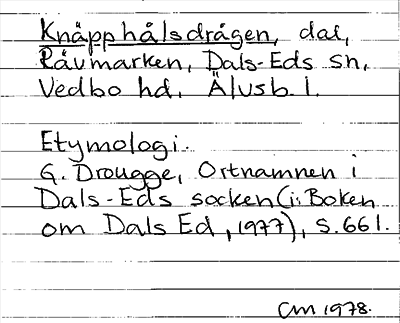 Knäpphålsdrågen, dal,
Råvmarken, Dals-Eds sn,
Vedbo hd. Älvsb. l.
Etymologi.
G. Drougge, Ortnamnen i
Dals-Eds socken (i: Boken
om Dals Ed, 1977), s. 661.
CM 1978.